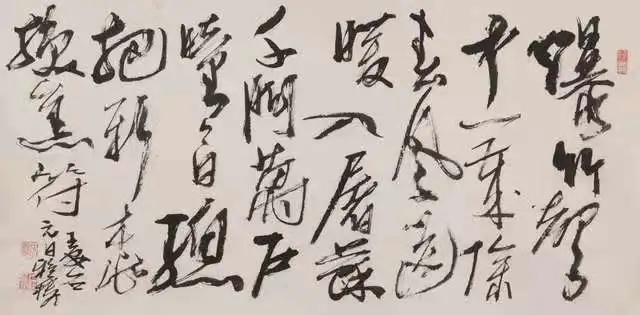 爆竹聲
中一歲除
春風送
暖入屠蘇
千門萬户
曈々日總
把新桃
換舊符
王安石
元日